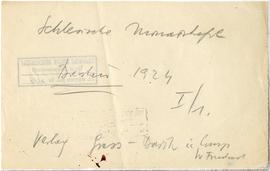 Schlesische Monatshefte
Breslau 1924
I/1.
Verlag Grass - Barth u. Comp.
W. Friedrich